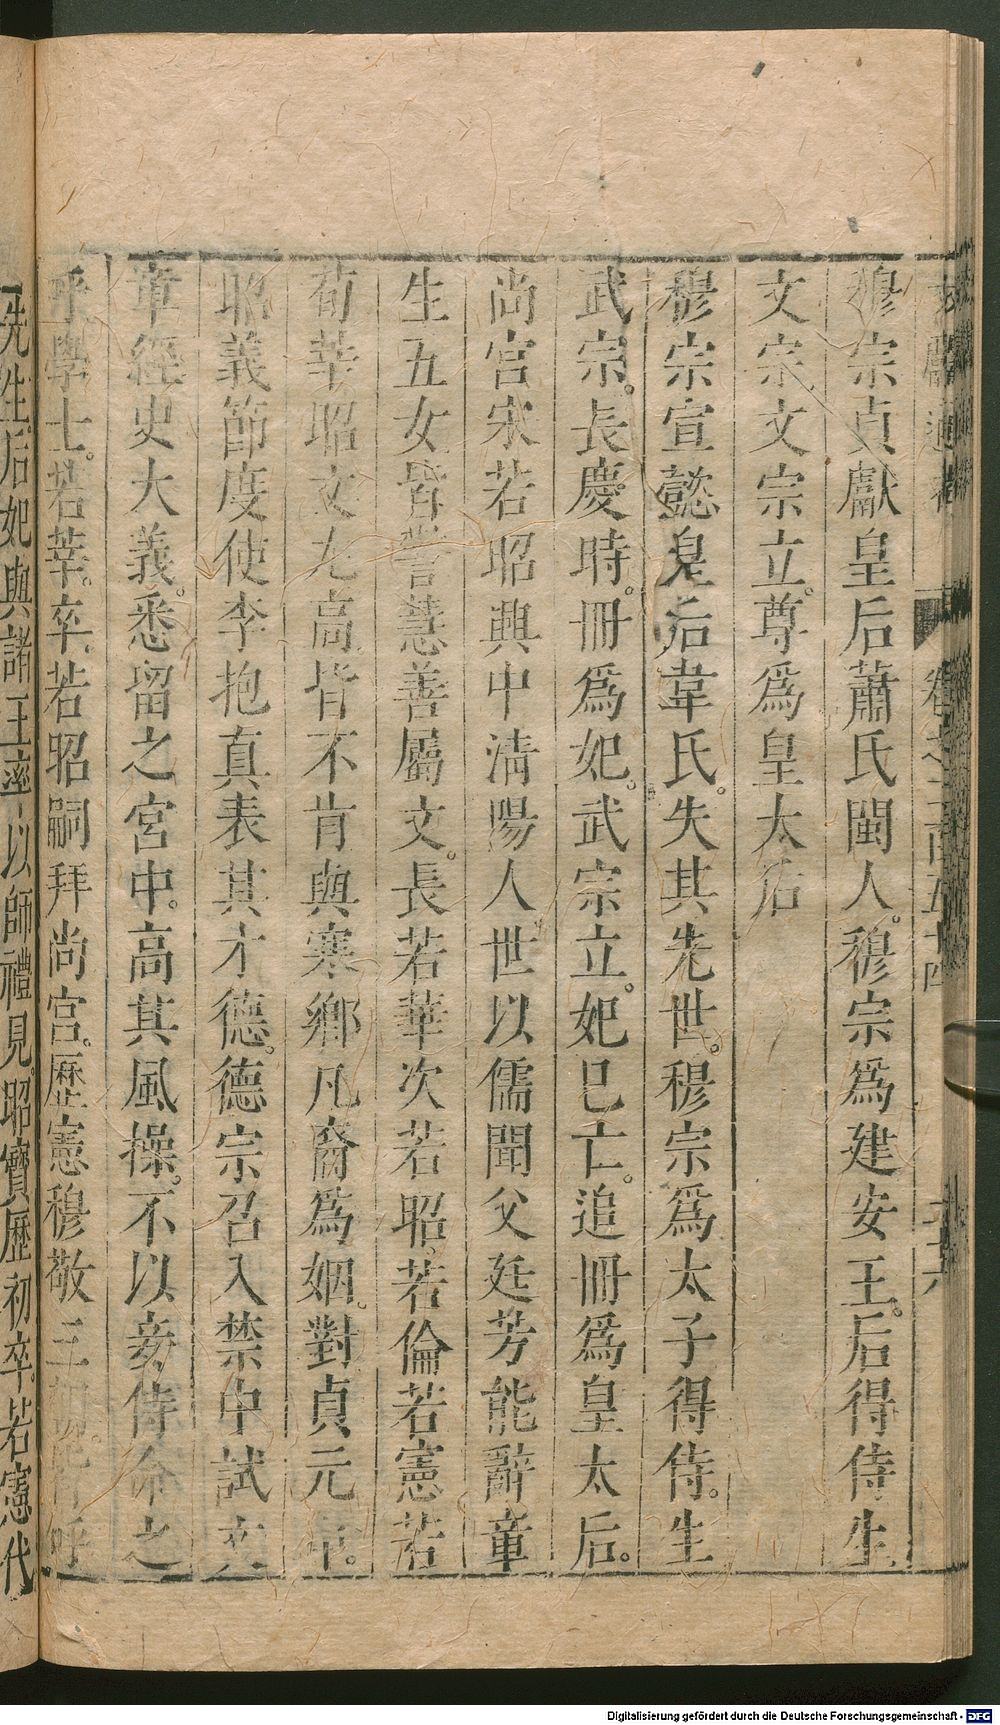 穆宗貞獻皇后蕭氏閩人。穆宗爲建安王。后得侍生
文宗文宗立。尊爲皇太后
穆宗宣懿皇后韋氏。失其先世。穆宗爲太子得侍。生
武宗。長慶時。冊爲妃。武宗立。妃已亡。追冊爲皇太后。
尚宮宋若昭興中清陽人世以儒聞父廷芳能辭章
生五女皆警慧善屬文。長若華次若昭。若倫若憲若
荀莘昭文尤高皆不肯與寒鄉凡裔爲姻。對貞元中。
昭義節度使李抱真表其才德。德宗召入禁中試文
章經史大義。悉留之宮中。高其風操。不以妾侍命之
呼學士。若莘。卒若昭嗣拜尚宮。歷憲穆敬三朝。皆呼
先生。后妃與諸王率以師禮見。昭寶歷初卒。若憲代
Digitalisierung gefördert durch die Deutsche Forschungsgemeinschaft - DFG